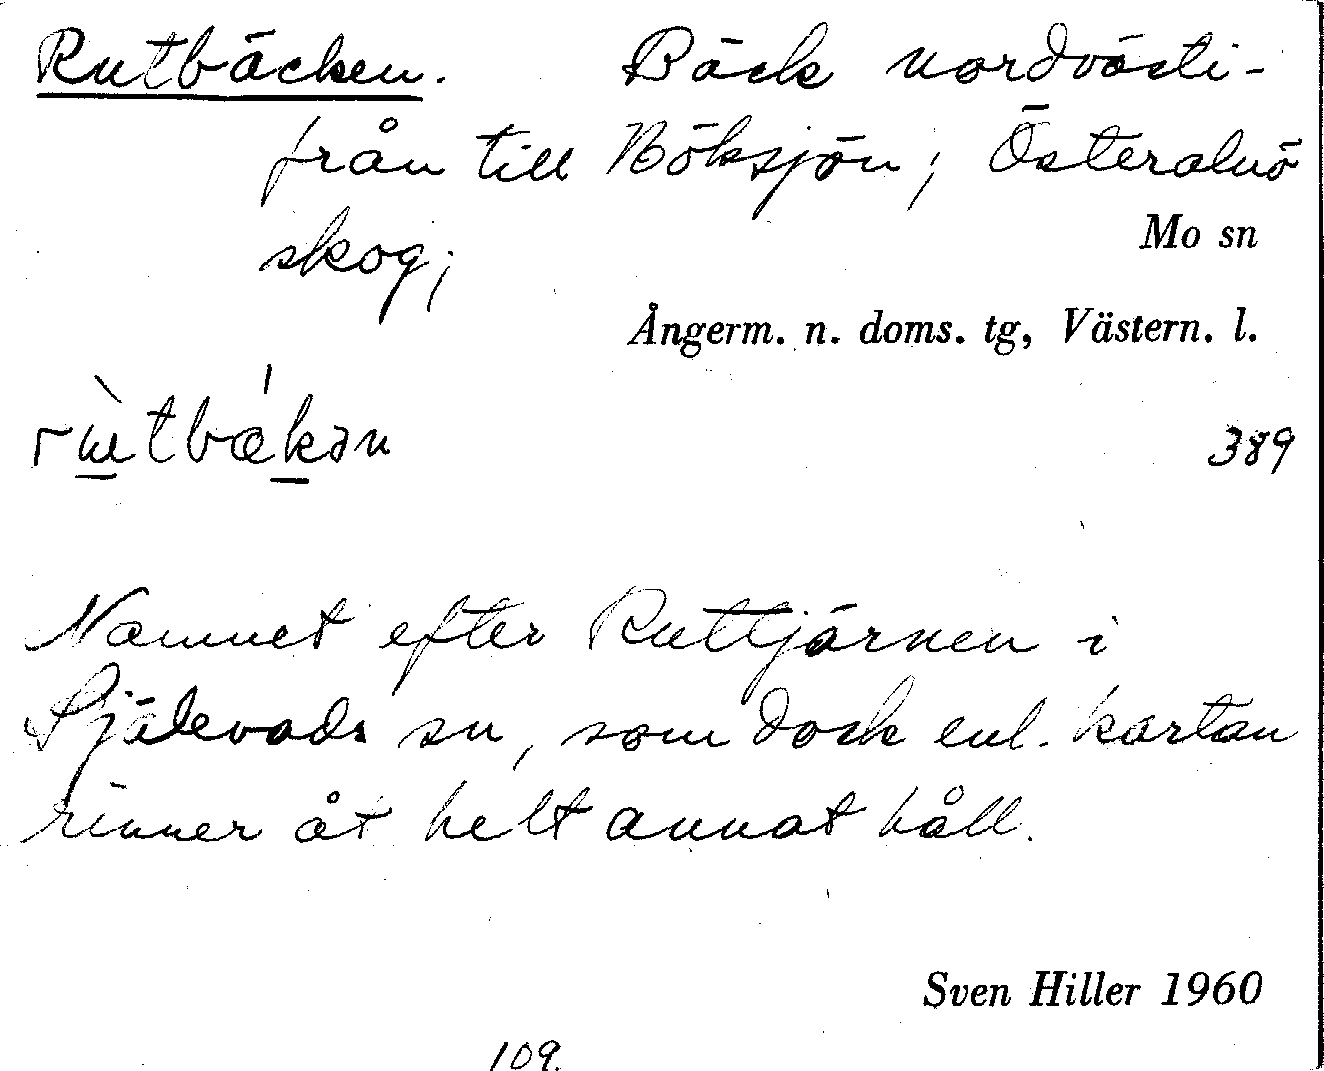 Rutbäcken. Bäck nordvästi-
från till Nöksjön; Österalnö
skog;
Mo sn
Ångerm. n. doms. tg, Västern. l.
389
Namnet efter Ruttjärnen i
Själevads sn, som dock enl. kartan
rinner åt helt annat håll.
Sven Hiller 1960
109.